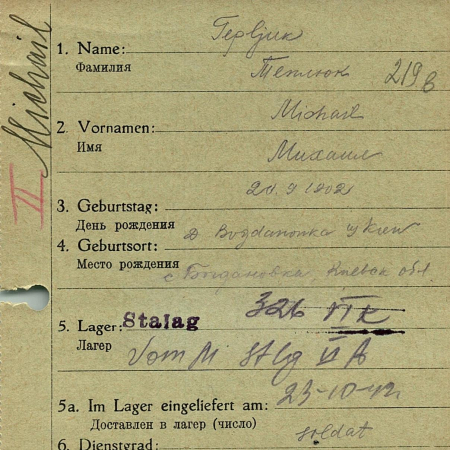 Michail
II
1. Name:
Фамилия
Теплюк
219 B
Michail
2. Vornamen:
Имя
Михаил
3. Geburtstag:
День рождения
9 1902
D. Bogdanowka Kiew
4. Geburtsort:
Место рождения
с. Богдановка, Киевск обл.
5. Lager: Stalag 326 VI K
Лагер
Vom M Stlg VI A
5a. Im Lager eingeliefert am: 23-10-42
Доставлен в лагер (число)
Soldat
6. Dienstgrad: